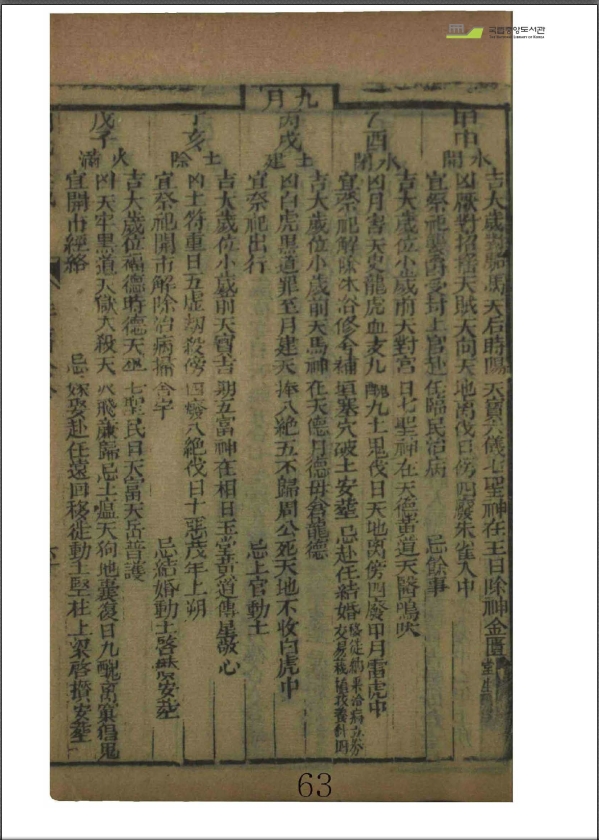 국립중앙도서관
THE NATIONAL LIBRARY OF KOREA
九月
甲申
水開
吉大歲對驛馬天后時陽天寶六儀七聖神在王日除神金匱
凶厭對招搖天賊大向天地离伐日傍四廢朱雀入中
宜祭祀 封上官赴任臨民治病 忌餘事
乙酉
水閉
吉大歲位小歲前天對宮日七聖神在天德黃道天醫鳴吠
凶月害天史龍虎血支九醜九土鬼伐日天地离傍四廢甲月雷虎中
宜祭祀解除沐浴修 補垣塞穴破土安葬 忌赴任結婚
丙戌
土建
吉大歲位小歲前天馬神在天德月德母倉龍德
凶白虎黑道罪至月建天捧八絶五不歸周公死天地不收白虎中
宜祭祀出行 忌上官動土
丁亥
土除
吉大歲位小歲前天寶吉期五富神在相日玉堂黃道傳星敬心
凶土符重日五虛劫殺傍四廢八絶伐日十惡茂年上朔
宜祭祀開市解除治病掃舍宇 忌結婚動土 安葬
戊子
火滿
吉大歲位福德時德天巫七聖民日天富天岳普護
凶天牢黑道天獄大殺天火飛廉歸忌土瘟天狗地囊復日九醜离窠 鬼
宜開市經絡 忌嫁娶赴任遠回移徙動土竪柱上樑啓攢安葬
63